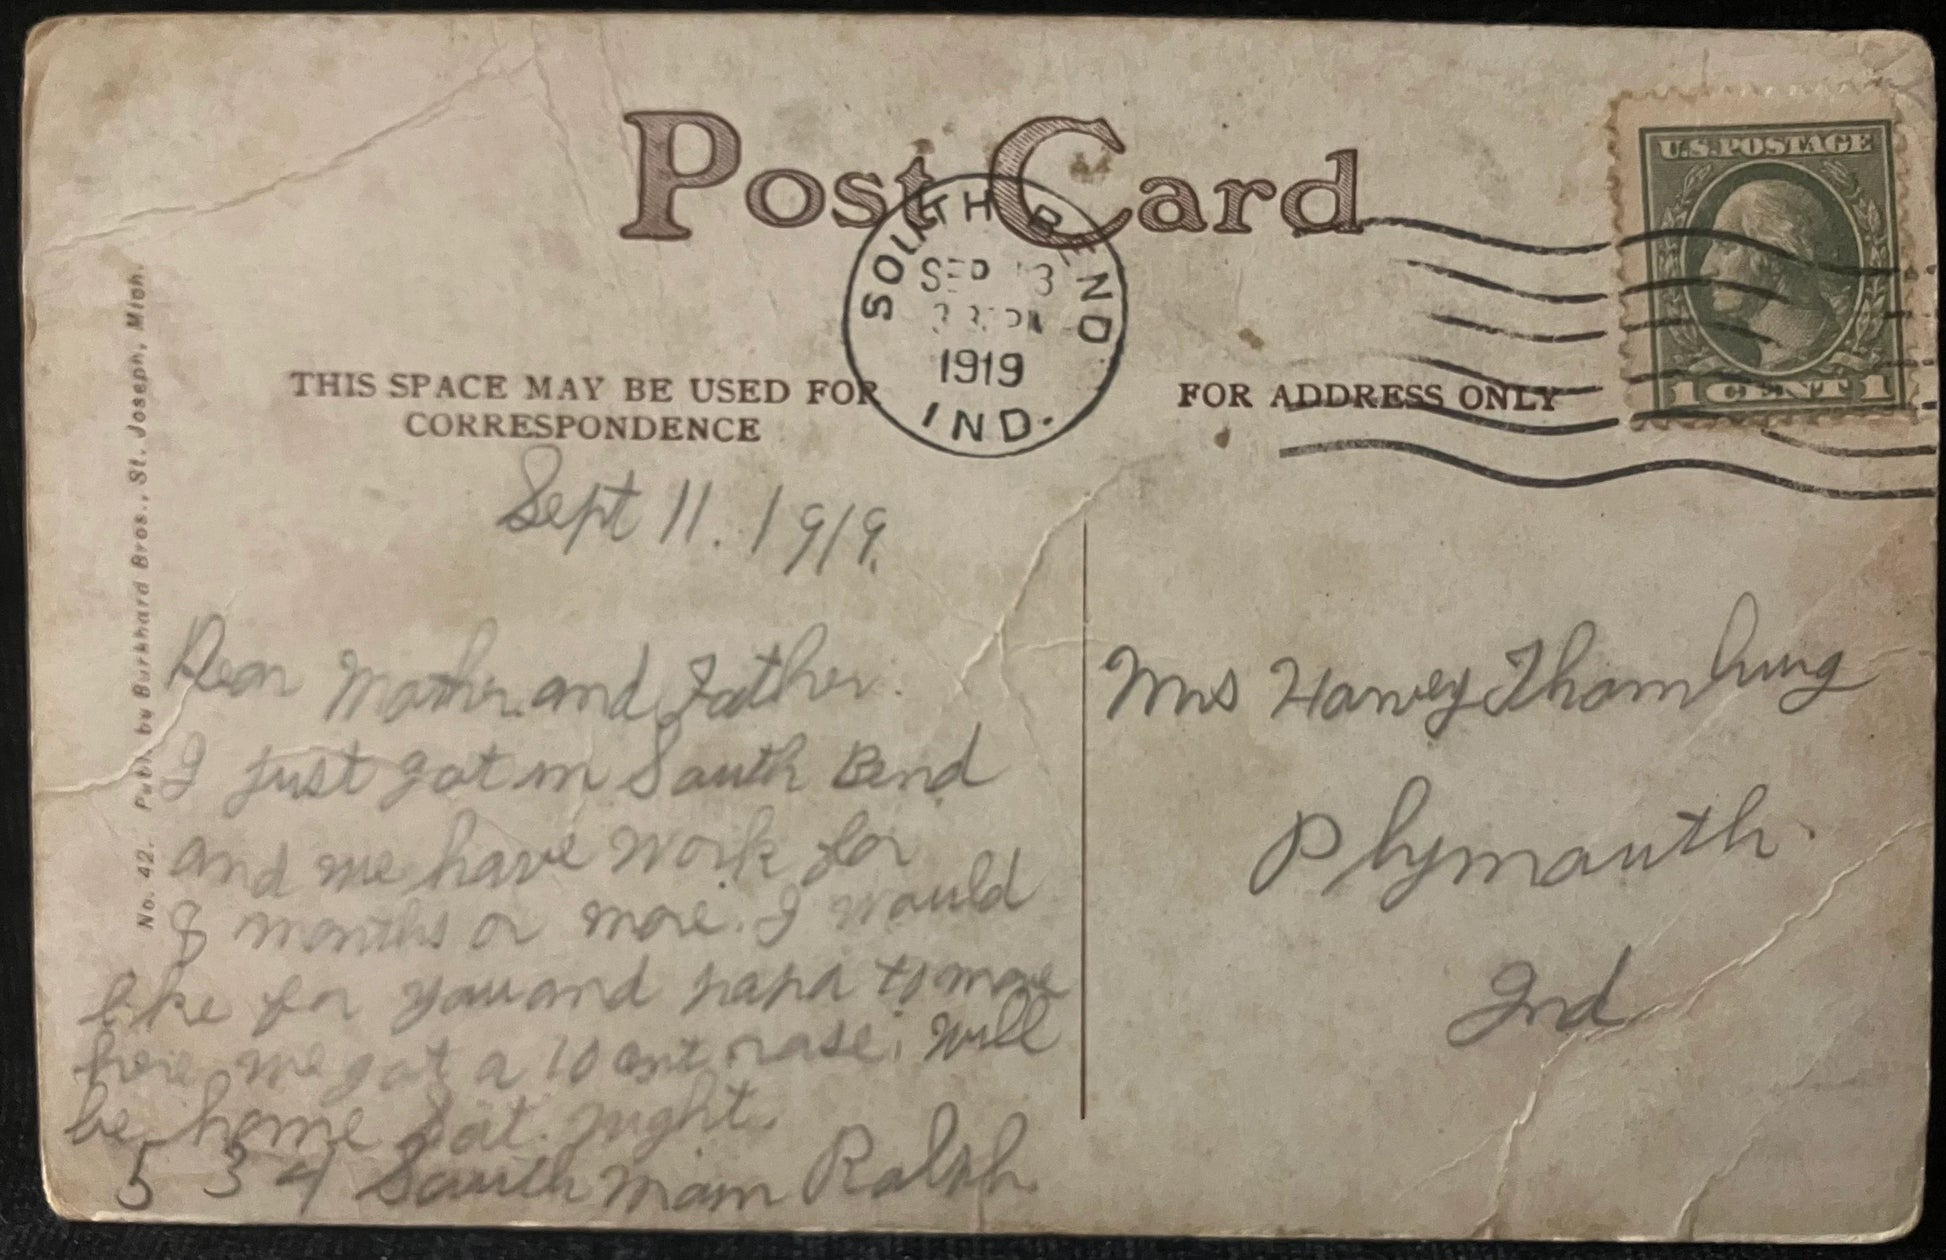 Post Card
U.S. POSTAGE
1 CENT 1
SOUTH BEND
SEP 13
PM
1919
IND.
THIS SPACE MAY BE USED FOR
CORRESPONDENCE
FOR ADDRESS ONLY
No. 42. Publ. by Burkhard Bros., St. Joseph, Mich.
Sept 11. 1919.
Dear Mother and Father.
I just got in South Bend
and we have work for
8 months or more. I would
like for you and papa to move
here we got a 10 cent rase. Will
be home Sat. night.
534 South Main Ralph
Mrs Harvey
Plymouth.
Ind